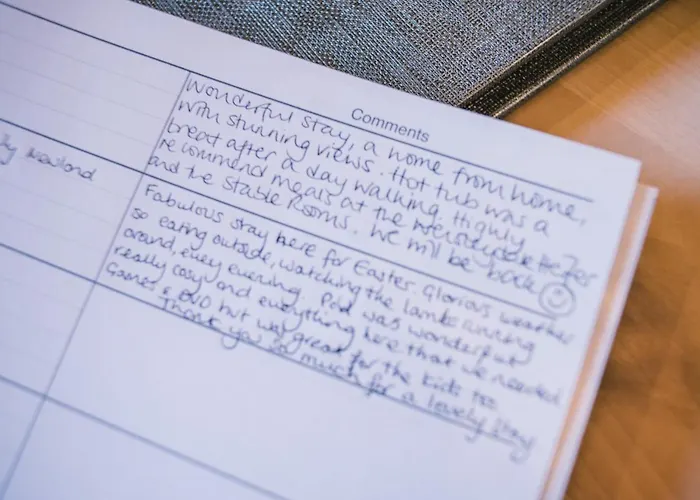 Comments
ly Newland
Wonderful stay, a home from home,
with stunning views. Hot tub was a
treat after a day walking. Highly
recommend meals at the
and the Stable Rooms. We will be back
Fabulous stay here for Easter. Glorious weather
so eating outside, watching the lambs running
around, every evening. Pod was wonderful
really cosy and everything here that we needed
Games & DVD hut was great for the kids too.
Thank you so much for a lovely stay